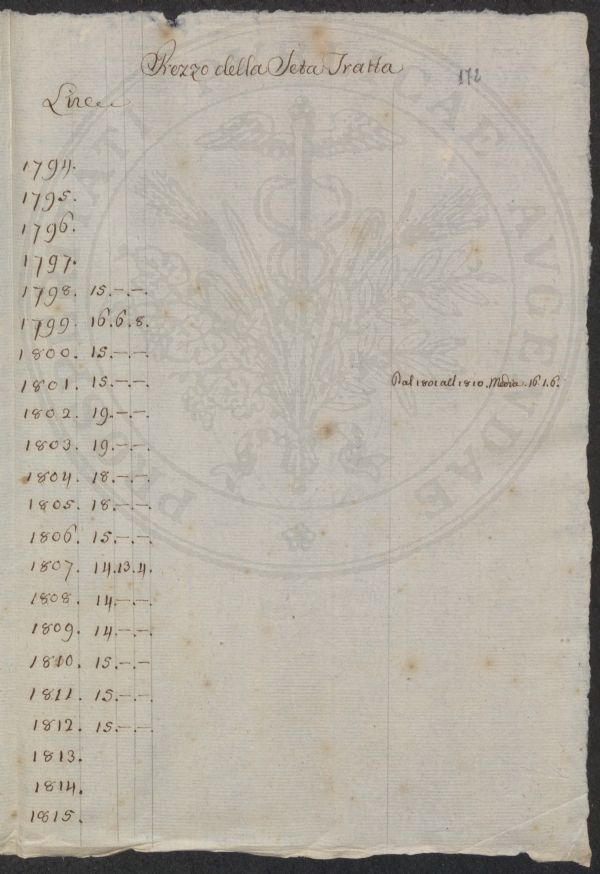 Prezzo della Seta Tratta
172
Lire
1794.
1795.
1796.
1797.
1798. 15.—.—.
1799. 16.6.8.
1800. 15.—.—
1801. 15.—.— Dal 1801 all 1810. Media. 16.1.6.
1802. 19.—.—
1803. 19.—.—
1804. 18.—.—
1805. 18.—.—
1806. 15.—.—
1807. 14.13.4.
1808. 14.—.—.
1809. 14.—.—.
1810. 15.—.—
1811. 15.—.—.
1812. 15.—.—.
1813.
1814.
1815.